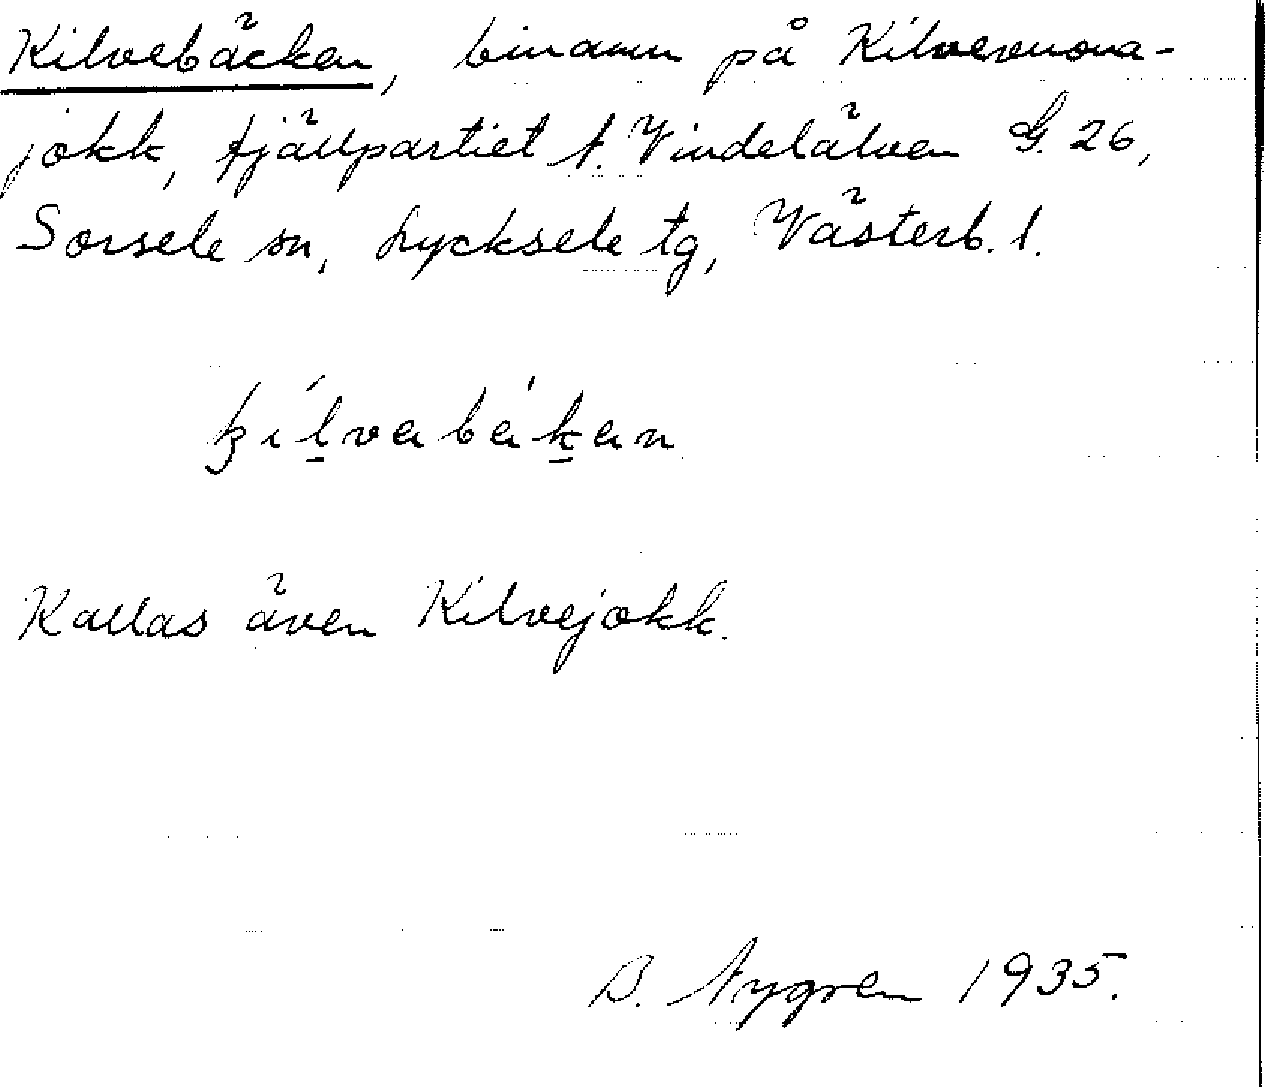 Kilvebäcken, binamn på Kilvevuoma-
jokk, fjällpartiet N. Vindelälven G. 26,
Sorsele sn, Lycksele tg, Västerb. l.
kilvabákan
Kallas även Kilvejokk.
B. Nygren 1935.